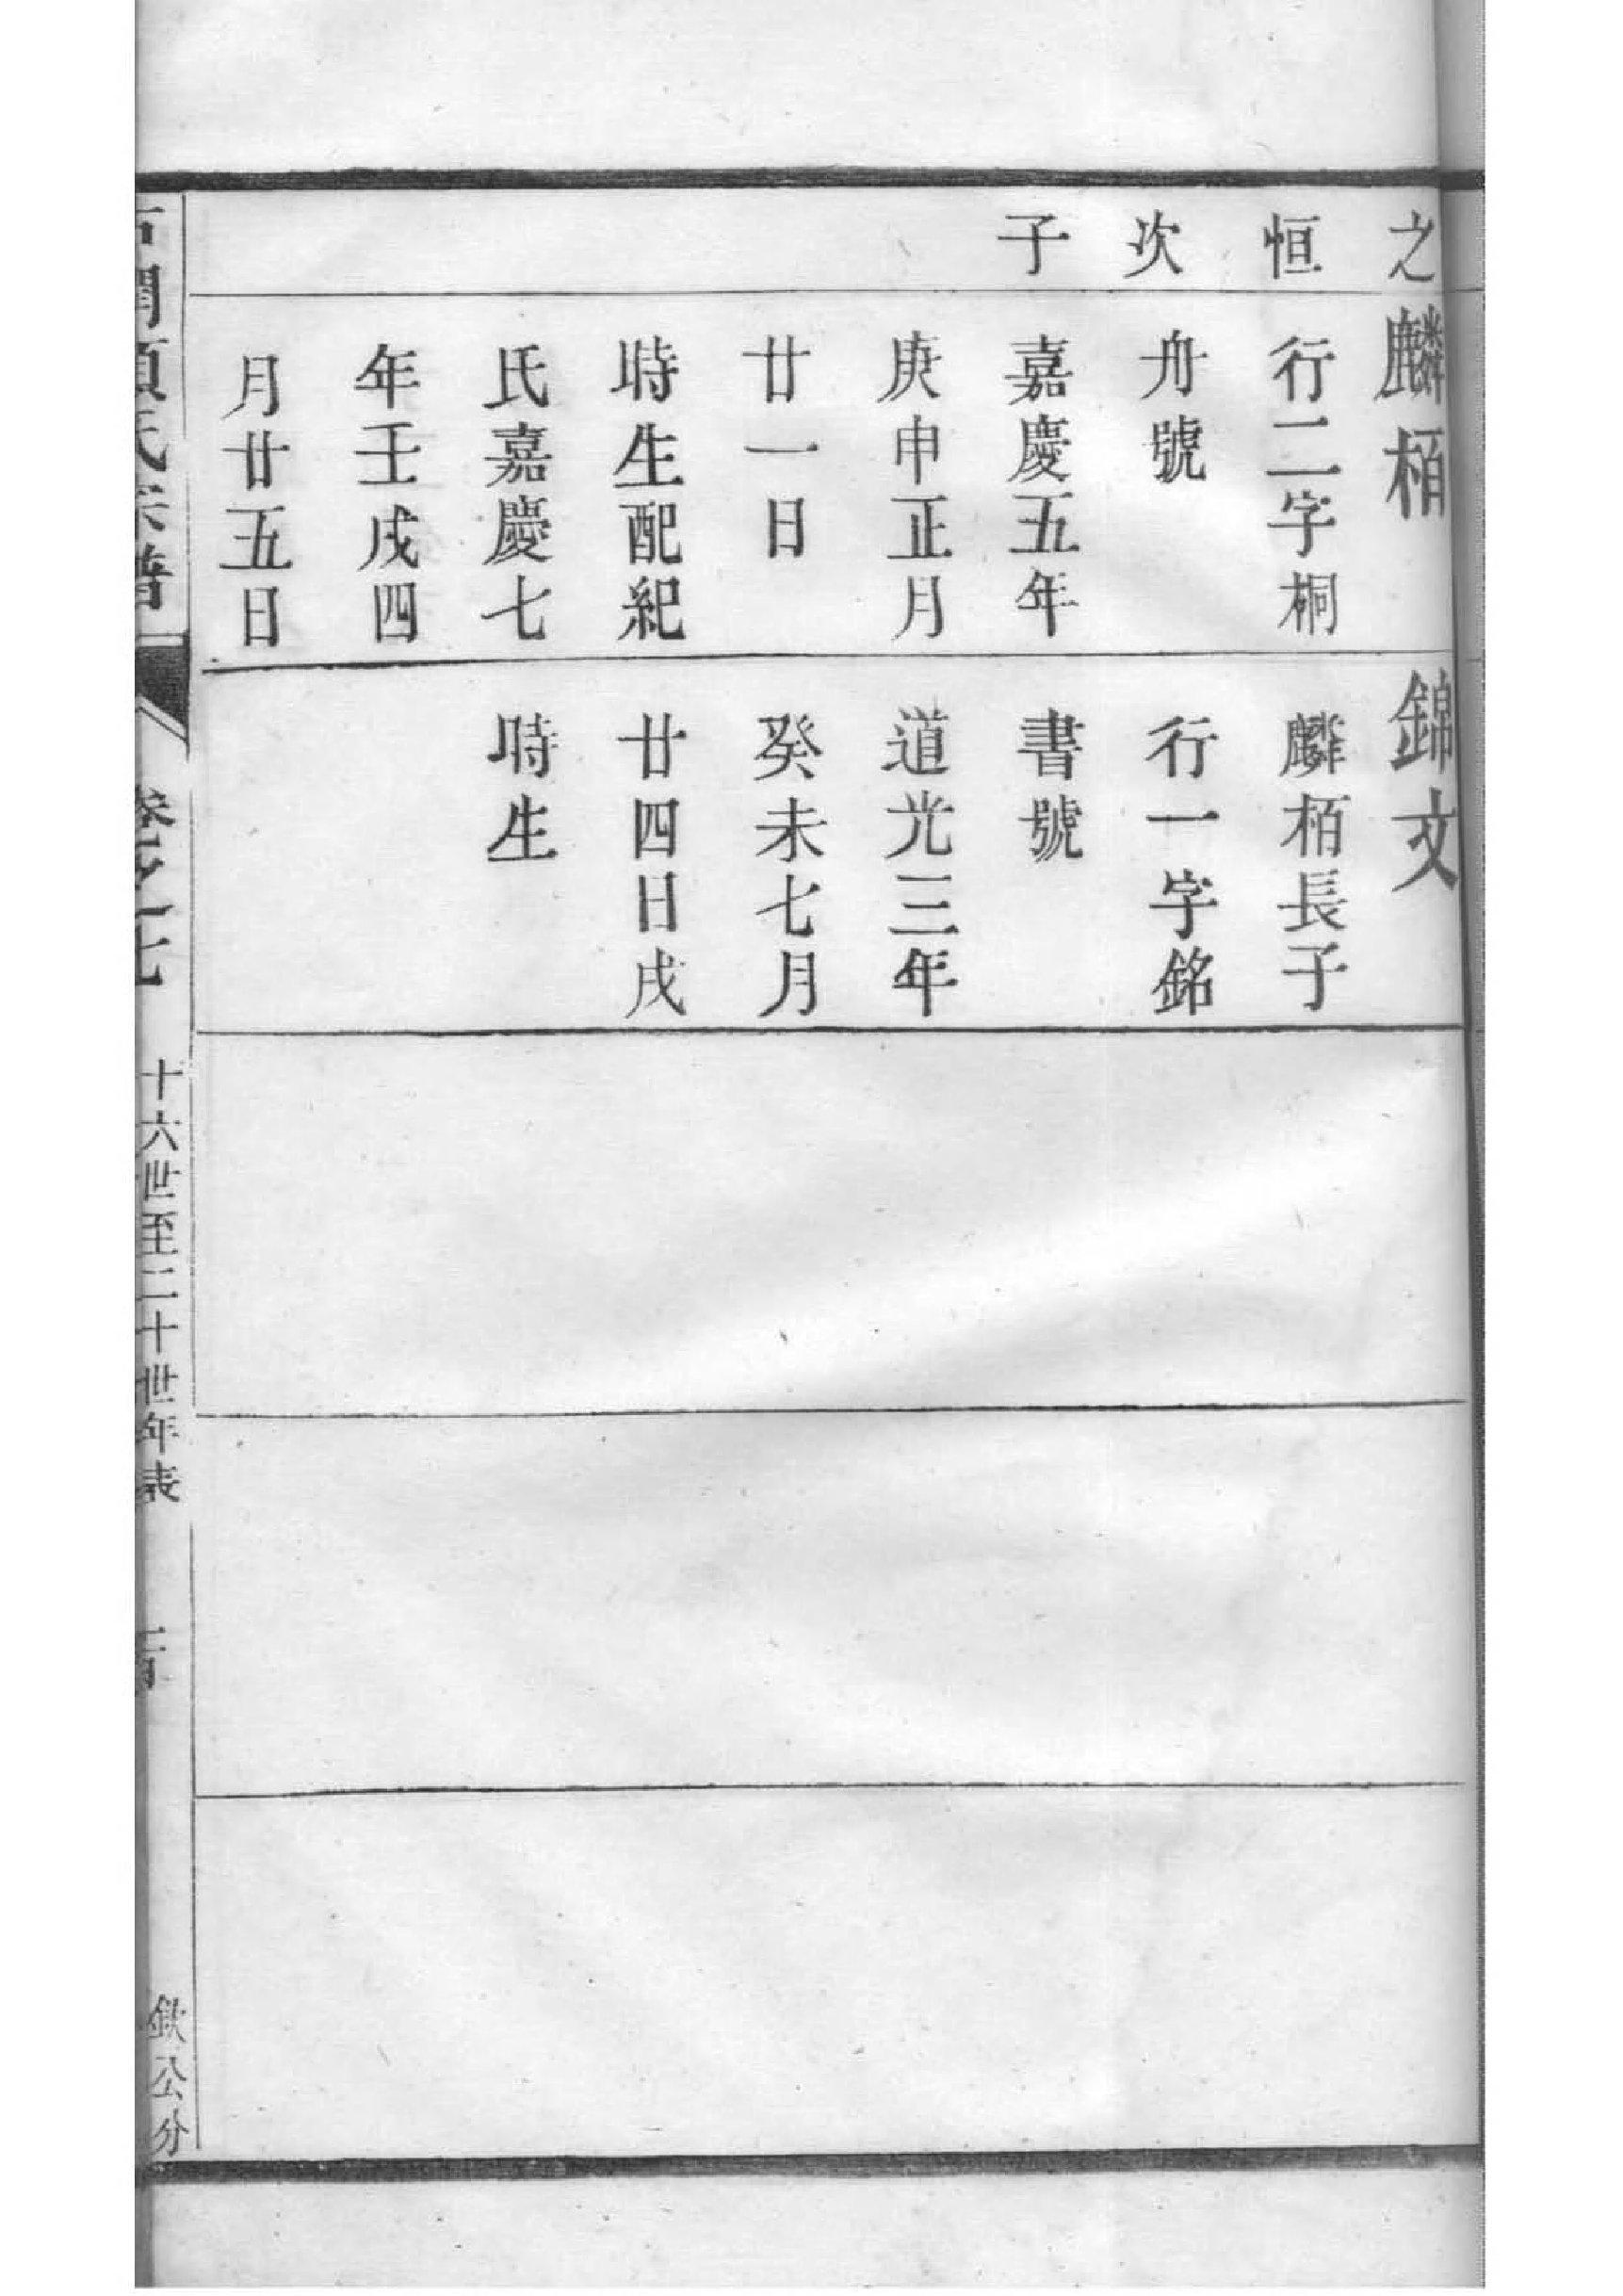 之恒次子
麟栢
行二字桐
舟號
嘉慶五年
庚申正月
廿一日
時生配紀
氏嘉慶七
年壬戌四
月廿五日
錦文
麟栢長子
行一字銘
書號
道光三年
癸未七月
廿四日戌
時生
氏宗譜
卷之十七
十六世至二十世年表
欽公分